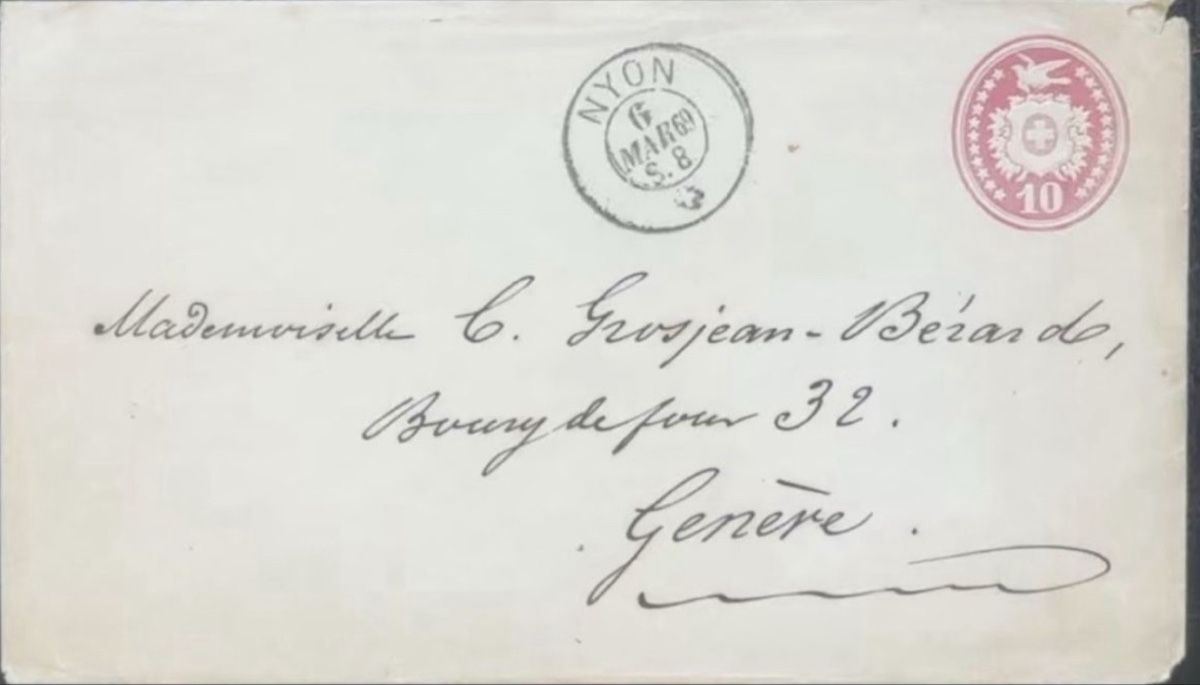 NYON
6
MAR 69
S. 8
10
Mademoiselle C. Grosjean-Bérard,
Bourg de four 32.
Genève.